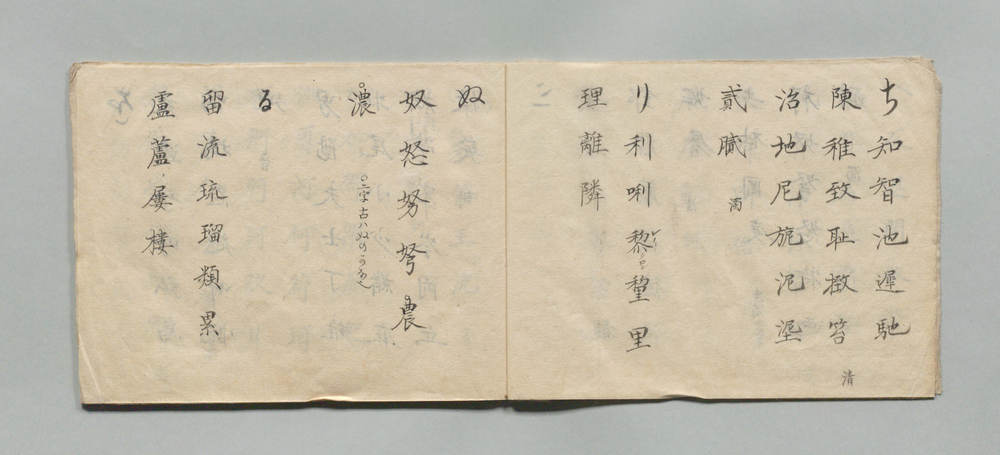 ち知智池遅馳
陳稚致耻撤笞
清
治地尼旎泥埿
貳膩
り利唎黎㴝里
理離隣
ぬ
奴怒努弩農
濃
二字古ハぬのかな也
る
留流琉瑠類累
盧蘆屢樓